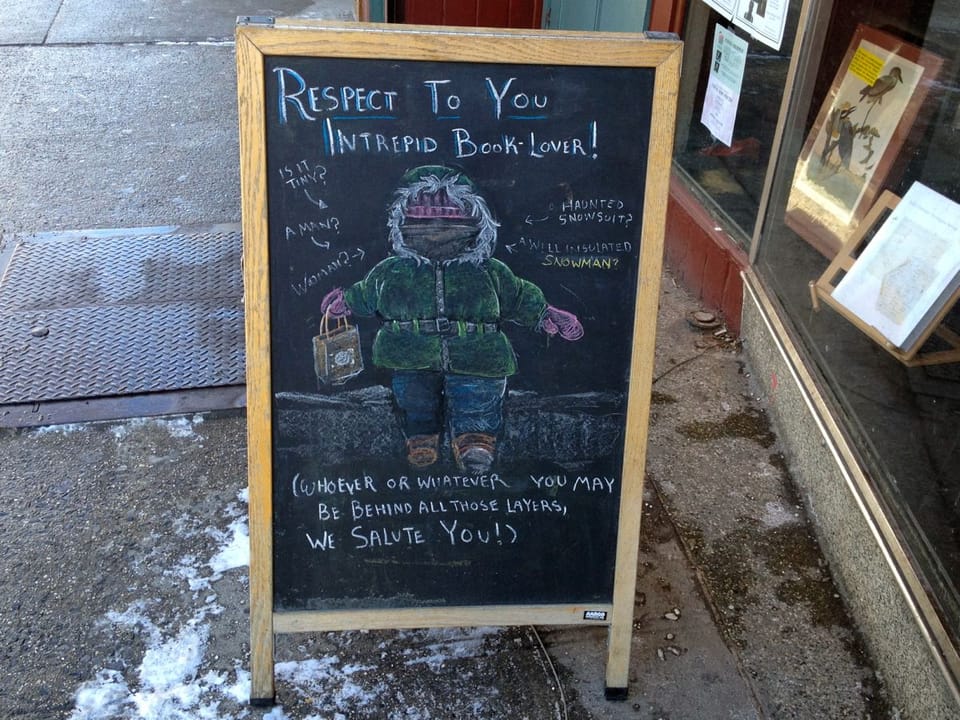 RESPECT TO YOU
INTREPID BOOK-LOVER!
IS IT
TINY?
A MAN?
WOMAN?
HAUNTED
SNOWSUIT?
A WELL INSULATED
SNOWMAN?
(WHOEVER OR WHATEVER YOU MAY
BE BEHIND ALL THOSE LAYERS,
WE SALUTE YOU!)